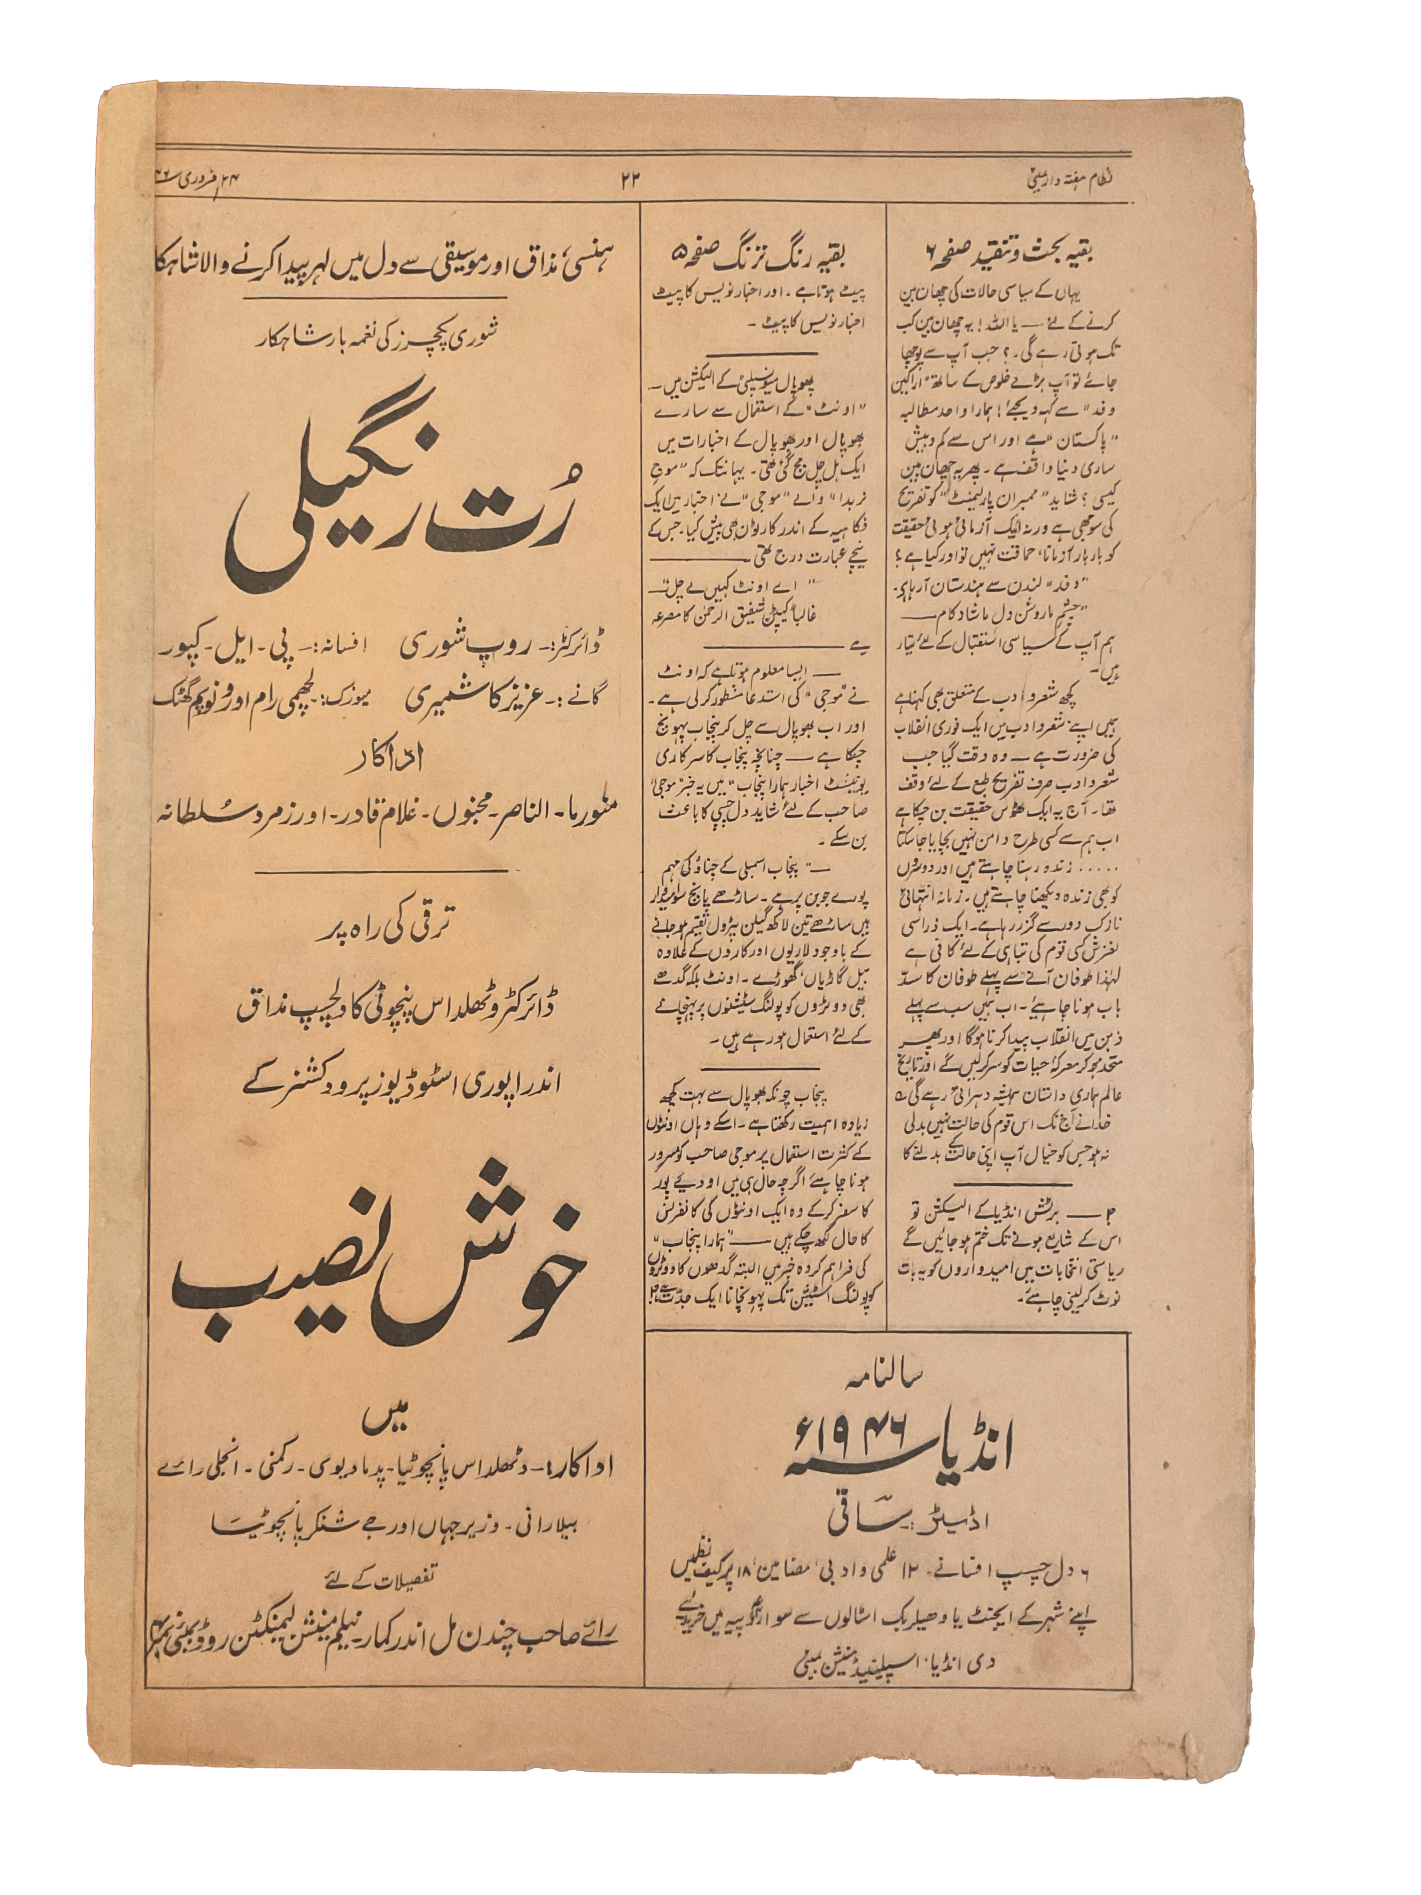 نظام ہفتہ وار بمبئی
۲۲
۲۴ فروری ۴۶
بقیہ بحث و تنقید صفحہ ۶
یہاں کے سیاسی حالات کی چھان بین
کرنے کے لئے ـــ یا اللہ! یہ چھان بین کب
تک ہوتی رہے گی۔؟ جب آپ سے پوچھا
جائے تو آپ بڑے خلوص کے ساتھ "اراکین
وفد" سے کہہ دیجئے! ہمارا واحد مطالبہ
"پاکستان" ہے اور اس سے کم و بیش
ساری دنیا واقف ہے۔ پھر یہ چھان بین
کیسی؟ شاید "ممبران پارلیمنٹ" کو تفریح
کی سوجھی ہے ورنہ ایک آزمائی ہوئی حقیقت
کو بار بار آزمانا، حماقت نہیں تو اور کیا ہے؟
"وفد" لندن سے ہندستان آرہا ہی۔
"چشم ما روشن دل ما شاد کام ـــ
ہم آپ کے سیاسی استقبال کے لئے تیار
ہیں۔
کچھ شعر و ادب کے متعلق بھی کہنا ہے
ہمیں اپنے شعر و ادب میں ایک فوری انقلاب
کی ضرورت ہے ـــ وہ وقت گیا جب
شعر و ادب صرف تفریح طبع کے لئے وقف
تھا۔ آج یہ ایک ٹھوس حقیقت بن چکا ہے
اب ہم سے کسی طرح دامن نہیں بچایا جا سکتا
..... زندہ رہنا چاہتے ہیں اور دوسروں
کو بھی زندہ دیکھنا چاہتے ہیں۔ زمانہ انتہائی
نازک دور سے گزر رہا ہے۔ ایک ذرا سی
لغزش کسی قوم کی تباہی کے لئے کافی ہے
لہٰذا طوفان آنے سے پہلے طوفان کا سدّ
باب ہونا چاہیئے۔ اب ہمیں سب سے پہلے
ذہن میں انقلاب پیدا کرنا ہوگا اور پھر
متحد ہو کر معرکۂ حیات کو سر کر لیں گے اور تاریخ
عالم ہماری داستان ہمیشہ دہراتی رہے گی ۵
خدا نے آج تک اس قوم کی حالت نہیں بدلی
نہ ہو جس کو خیال آپ اپنی حالت کے بدلنے کا
۲ ـــ برٹش انڈیا کے الیکشن تو
اس کے شایع ہونے تک ختم ہو جائیں گے
ریاستی انتخابات میں امیدواروں کو یہ بات
نوٹ کر لینی چاہئے۔
بقیہ رنگ ترنگ صفحہ ۵
پیٹ ہوتا ہے۔ اور اخبار نویس کا پیٹ
اخبار نویس کا پیٹ۔
بھوپال میونسپلٹی کے الیکشن میں ـ
"اونٹ" کے استعمال سے سارے
بھوپال اور بھوپال کے اخبارات میں
ایک ہل چل مچ گئی تھی۔ یہانتک کہ "موج
نربدا" والے "موجی" نے اخبار میں ایک
فکاہیہ کے اندر کارٹون بھی پیش کیا۔ جس کے
نیچے عبارت درج تھی ـــ
"اے اونٹ کہیں لے چل" ـ
غالباً کیپٹن شفیق الرحمٰن کا مصرعہ
ہے ـــ
ـــ ایسا معلوم ہوتا ہے کہ اونٹ
نے "موجی" کی استدعا منظور کر لی ہے۔
اور اب بھوپال سے چل کر پنجاب پہونچ
چکا ہے ـــ چنانچہ پنجاب کا سرکاری
یونینسٹ اخبار ہمارا پنجاب" میں یہ خبر "موجی"
صاحب کے لئے شاید دل چسپی کا باعث
بن سکے۔
ـــ "پنجاب اسمبلی کے چناؤ کی مہم
پورے جوبن پر ہے۔ ساڑھے پانچ سو امیدوار
ہیں ساڑھے تین لاکھ گیلن پیڑول تقسیم ہو جانے
کے باوجود لاریوں اور کاروں کے علاوہ
بیل گاڑیاں، گھوڑے۔ اونٹ بلکہ گدھے
بھی ووٹروں کو پولنگ سٹیشنوں پر پہنچانے
کے لئے استعمال ہو رہے ہیں۔
پنجاب چونکہ بھوپال سے بہت کچھ
زیادہ اہمیت رکھتا ہے۔ اسکے وہاں اونٹوں
کے کثرت استعمال پر موجی صاحب کو مسرور
ہونا چاہئے اگرچہ حال ہی میں اودے پور
کا سفر کر کے وہ ایک اونٹوں کی کانفرنس
کا حال لکھ چکے ہیں ـــ "ہمارا پنجاب"
کی فراہم کردہ خبر میں البتہ گدھوں کا ووٹروں
کو پولنگ اسٹیشن تک پہونچانا ایک جدّت ہے
ہنسی مذاق اور موسیقی سے دل میں لہر پیدا کرنے والا شاہکا
شوری پکچرز کی نغمہ بار شاہکار
رُت رنگیلی
ڈائرکٹر:۔ روپ شوری افسانہ:۔ پی۔ ایل۔ کپور
گانے:۔ عزیز کاشمیری میوزک:۔ لچھمی رام اور ونود پم گھٹک
اداکار
منورما۔ الناصر۔ مجنوں۔ غلام قادر۔ اور زمرد سلطانہ
ترقی کی راہ پر
ڈائرکٹر وٹھلداس پنچوٹی کا دلچسپ مذاق
اندرا پوری اسٹوڈیوز پروڈکشنز کے
خوش نصیب
میں
اداکار:۔ وٹھلداس پانچوٹیا۔ پدما دیوی۔ رکمنی۔ انجلی رائے
بیلا رانی۔ وزیر جہاں اور جے شنکر پانچوٹیا
تفصیلات کے لئے
رائے صاحب چندن مل اندر کمار۔ نیلم مینشن لیمنگٹن روڈ بمبئی نمبر
سالنامہ
انڈیا سنہ ۱۹۴۶ء
اڈیٹر:۔ ساقی
۶ دل چسپ افسانے۔ ۱۲ علمی و ادبی، مضامین، ۱۸ پر کیف نظمیں
اپنے شہر کے ایجنٹ یا وھیلر بک اسٹالوں سے سوا روپیہ میں خریدئے
دی انڈیا، اسپلینیڈ مینشن بمبئی